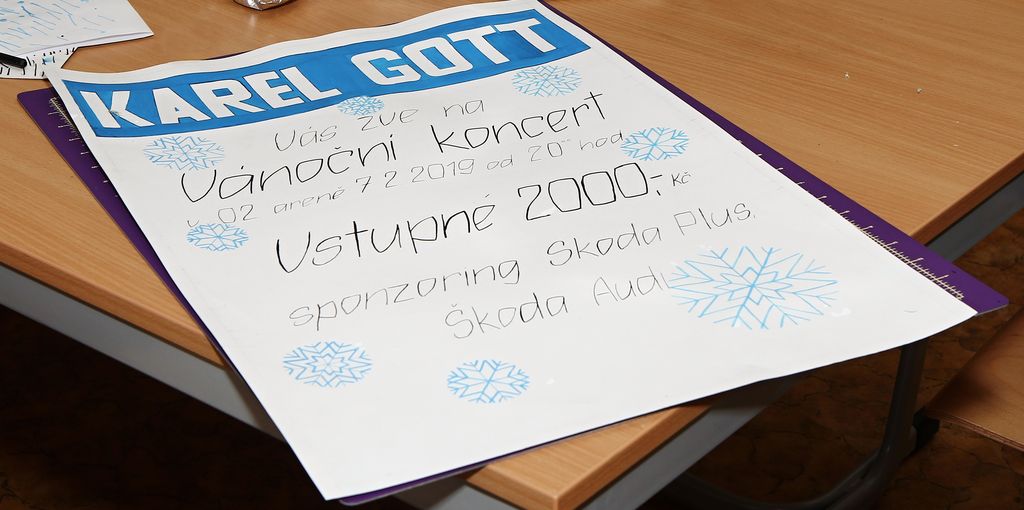 KAREL GOTT
Vás zve na
Vánoční koncert
v O2 areně 7 2 2019 od 20⁰⁰ hod
Vstupné 2000,- Kč
sponzoring Škoda Plus,
Škoda Audi